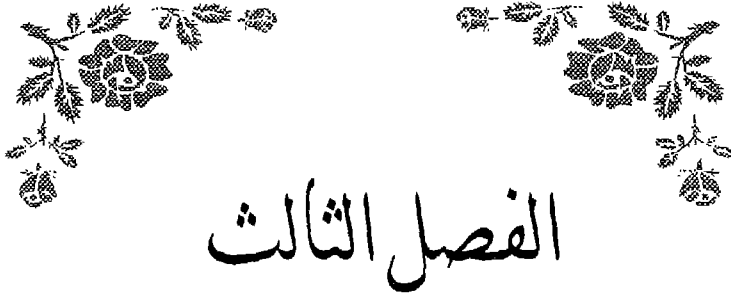 الفصل الثالث